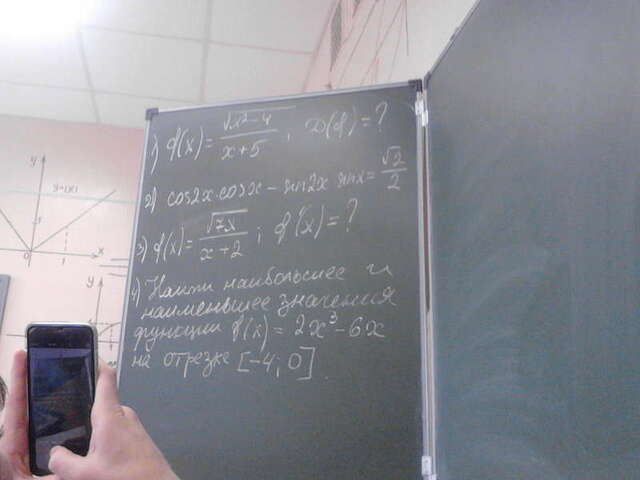 1) f(x) = √(x²-4) / (x+5) ; D(f) = ?
2) cos2x·cosx - sin2x sinx = √2/2
3) f(x) = √(7x) / (x+2) ; f'(x) = ?
4) Найти наибольшее и
наименьшее значения
функции f(x) = 2x³-6x
на отрезке [-4; 0].
y
y=|x|
0
1
x
y